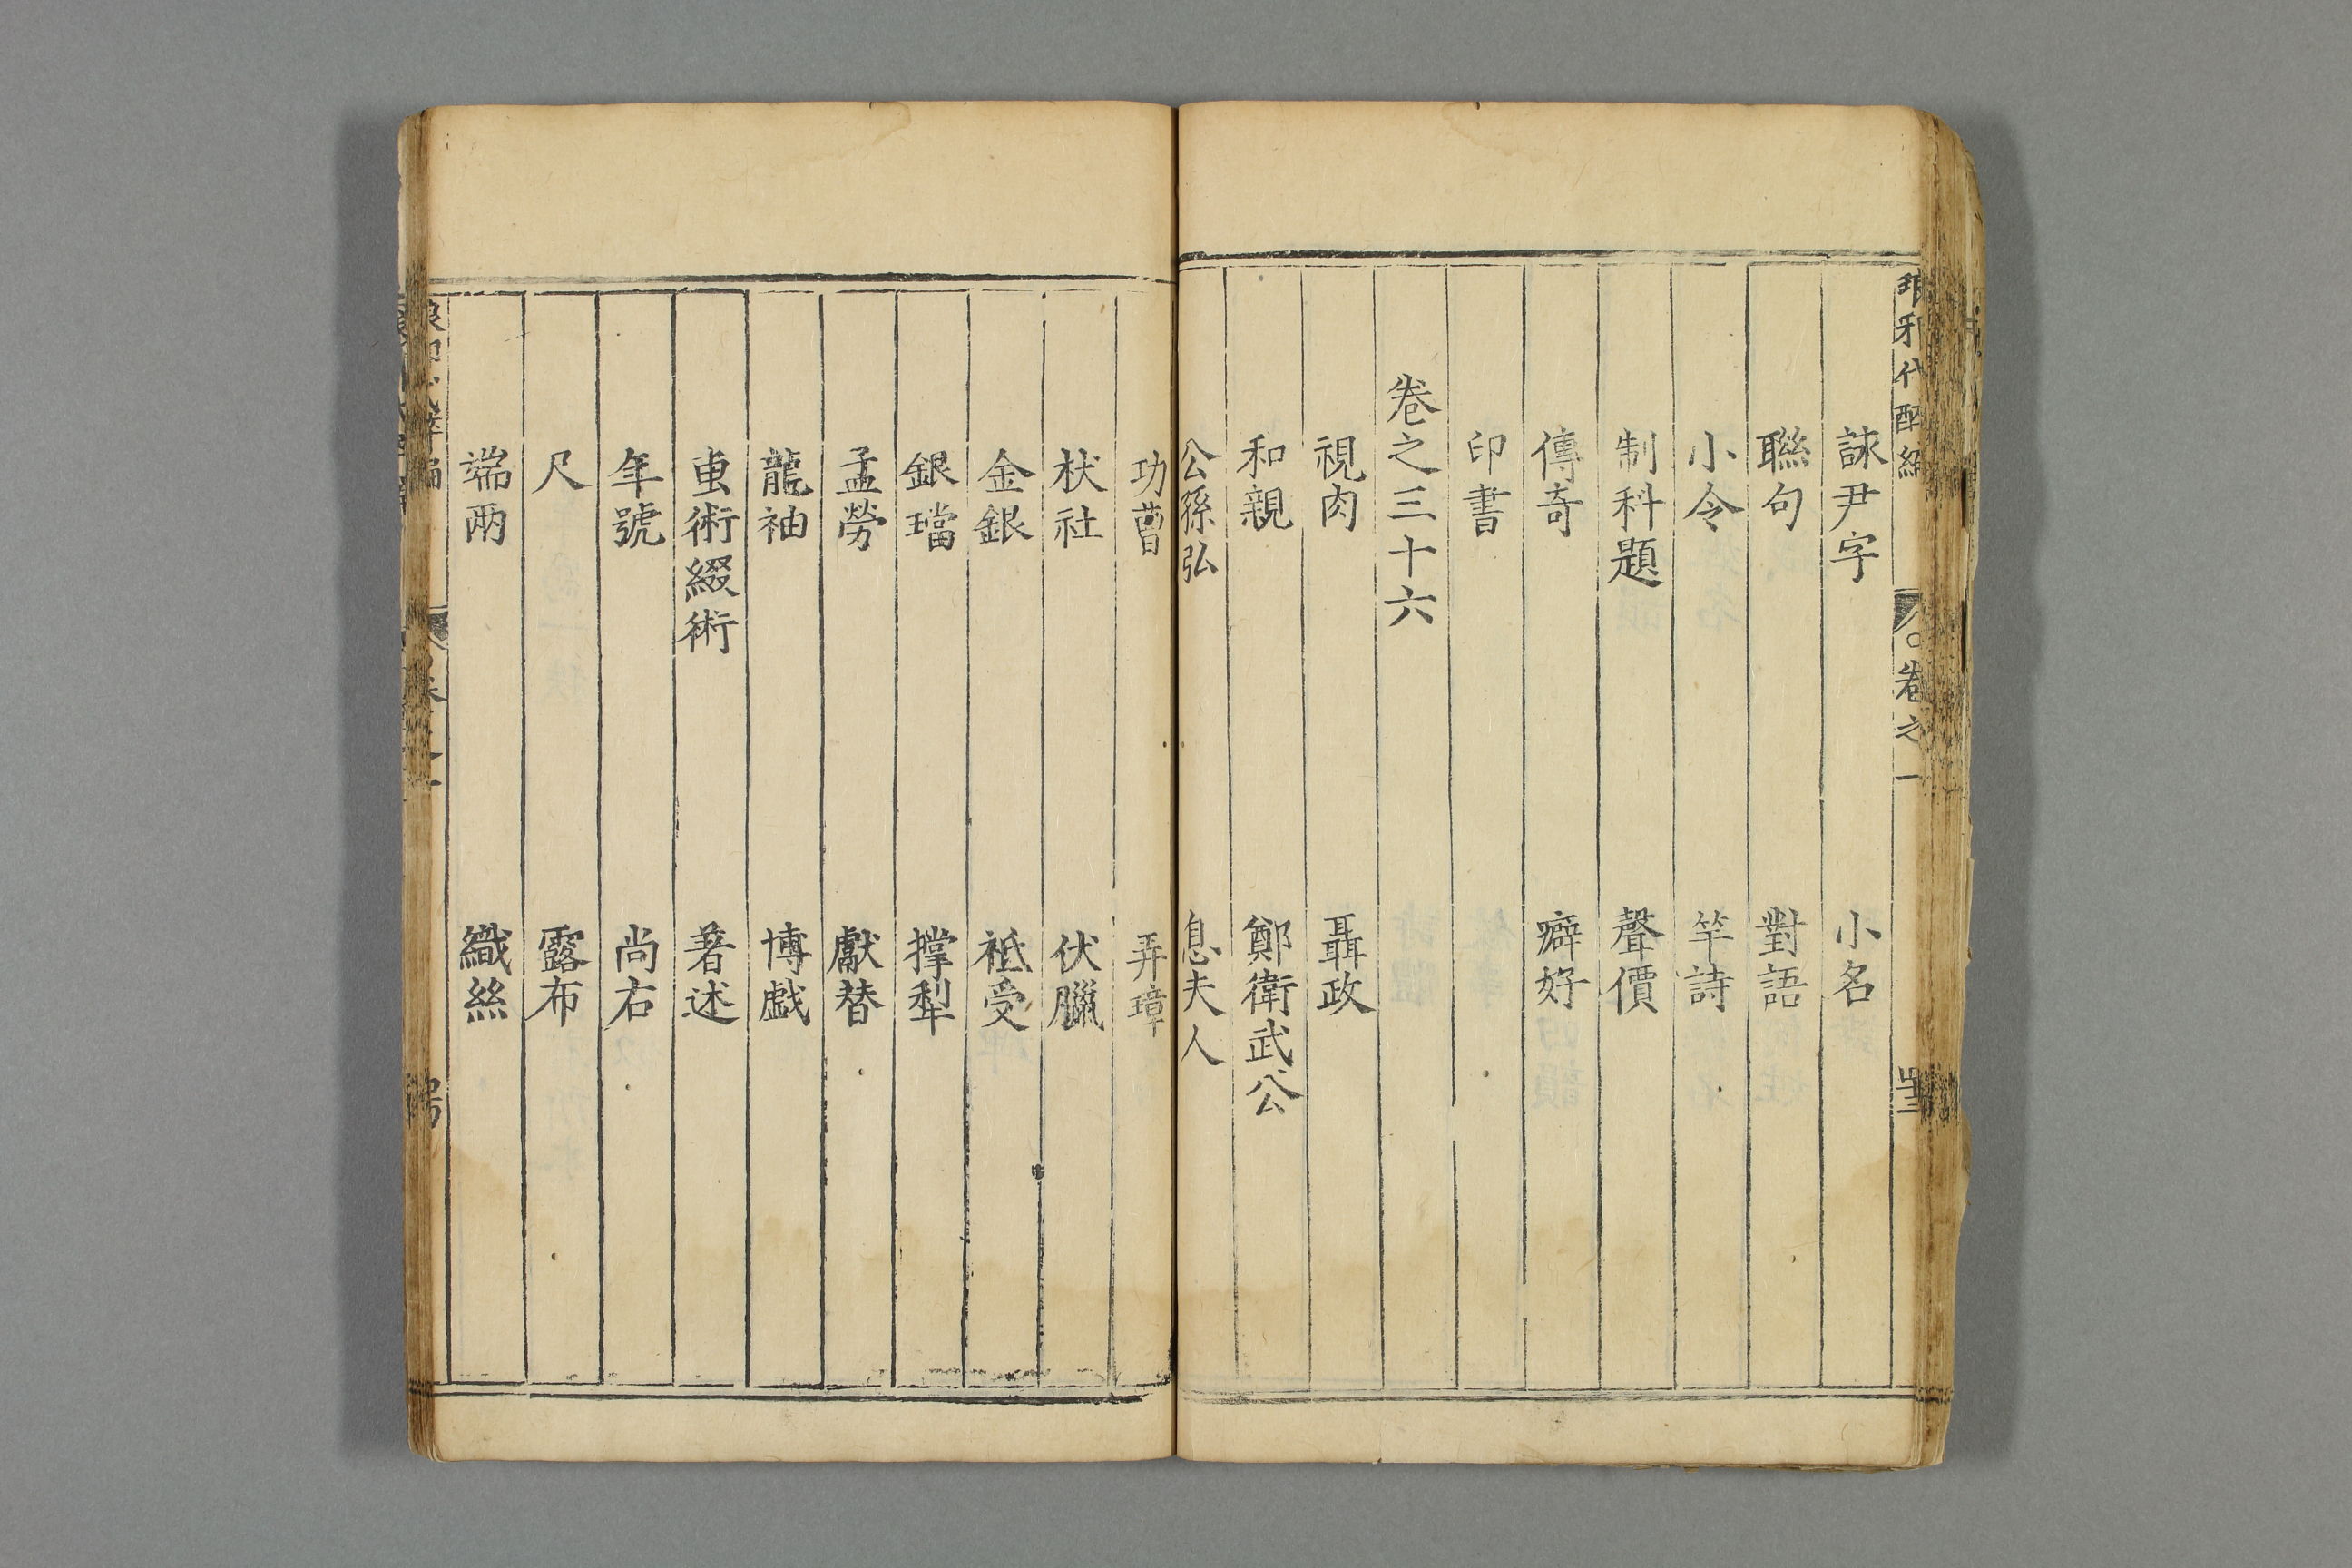 琅邪代醉編 卷之一
誄尹字 小名
聯句 對語
小令 竿詩
制科題 聲價
傳奇 癖好
印書
卷之三十六
視肉 聶政
和親 鄭衛武公
公孫弘 息夫人
功曹 弄璋
杕社 伏臘
金銀 袛受
銀璫 撑犁
孟勞 獻替
龍袖 博戯
䖝術綴術 著述
年號 尚右
尺 露布
端兩 織絲